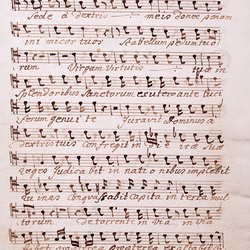 sede a dextris meis donec ponam
ini micos tuos scabellum pedum tuo
rum Virgam Virtutis tuae in
splendoribus Sanctorum ex utero ante luci
ferum genui te Juravit Dominus a
dextris tuis confregit in die irae suae
reges Judicabit in nationibus implebit
ruinas conquasabit capita in terra mul
torum de torrente in via in via